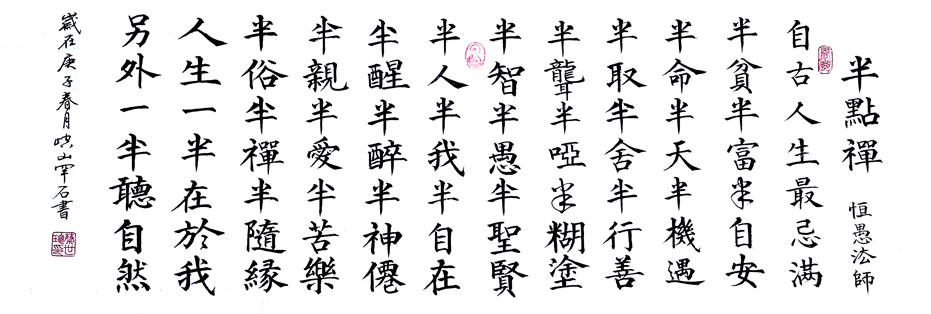 半點禪 恒愚法師
自古人生最忌满
半貧半富半自安
半命半天半機遇
半取半舍半行善
半聾半啞半糊塗
半智半愚半聖賢
半人半我半自在
半醒半醉半神僊
半親半愛半苦樂
半俗半禪半隨緣
人生一半在於我
另外一半聽自然
嵗在庚子春月山罕石書